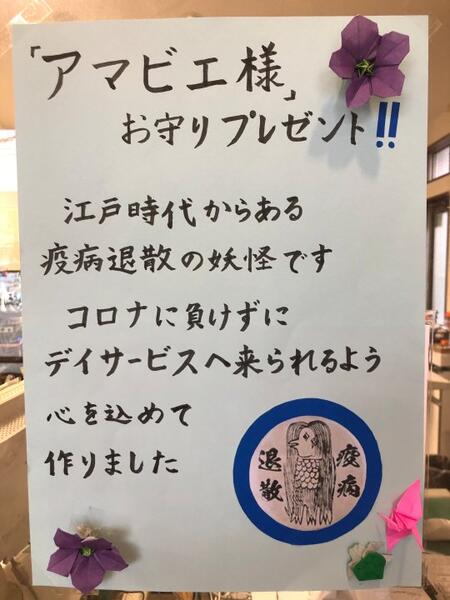 「アマビエ様」
お守りプレゼント!!
江戸時代からある
疫病退散の妖怪です
コロナに負けずに
デイサービスへ来られるよう
心を込めて
作りました
疫病
退散